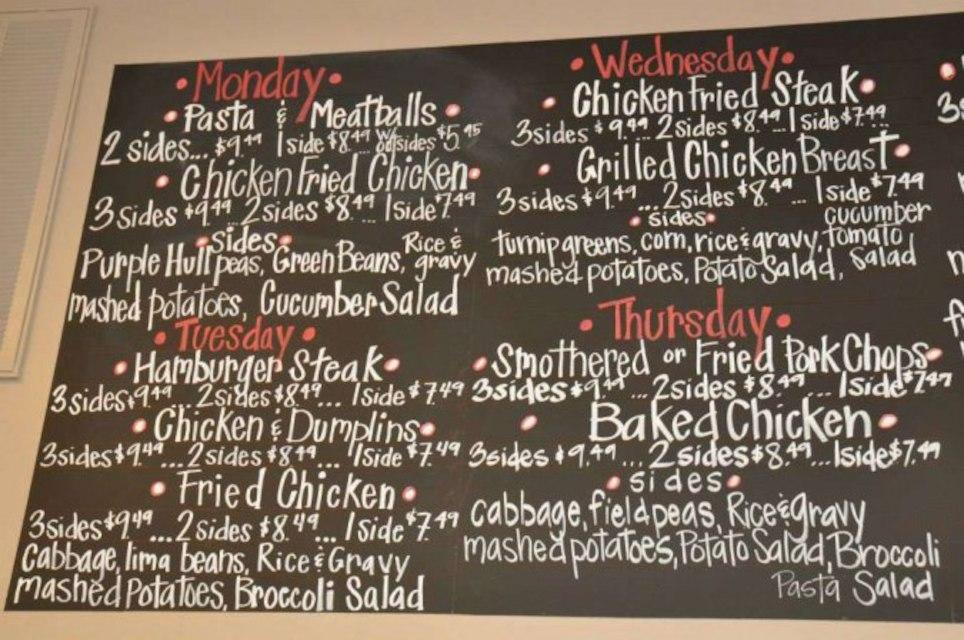 Monday
Pasta & Meatballs
2 sides... $9.49 1 side $8.49 w/o sides $5.95
Chicken Fried Chicken
3 sides $9.49... 2 sides $8.49... 1 side $7.49
sides
Purple Hull peas, Green Beans, Rice & gravy
mashed potatoes, Cucumber Salad
Tuesday
Hamburger Steak
3 sides $9.49 2 sides $8.49... 1 side $7.49
Chicken & Dumplins
3 sides $9.49... 2 sides $8.49... 1 side $7.49
Fried Chicken
3 sides $9.49... 2 sides $8.49... 1 side $7.49
cabbage, lima beans, Rice & Gravy
mashed Potatoes, Broccoli Salad
Wednesday
Chicken Fried Steak
3 sides $9.49... 2 sides $8.49... 1 side $7.49
Grilled Chicken Breast
3 sides $9.49... 2 sides $8.49... 1 side $7.49
sides
turnip greens, corn, rice & gravy, cucumber tomato Salad
mashed potatoes, Potato Salad,
Thursday
Smothered or Fried Pork Chops
3 sides $9.49... 2 sides $8.49... 1 side $7.49
Baked Chicken
3 sides $9.49... 2 sides $8.49... 1 side $7.49
sides
cabbage, field peas, Rice & gravy
mashed potatoes, Potato Salad, Broccoli
Pasta Salad